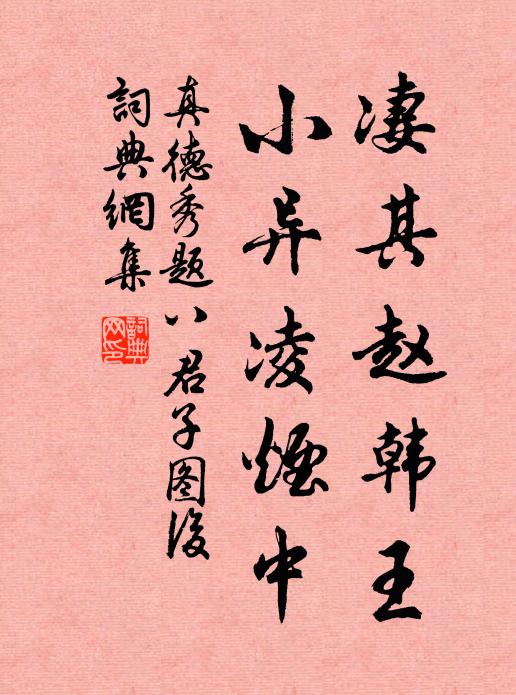 凄其赵韩王
小异凌煙中
真德秀题八君子图後
詞典網集
詞典網印